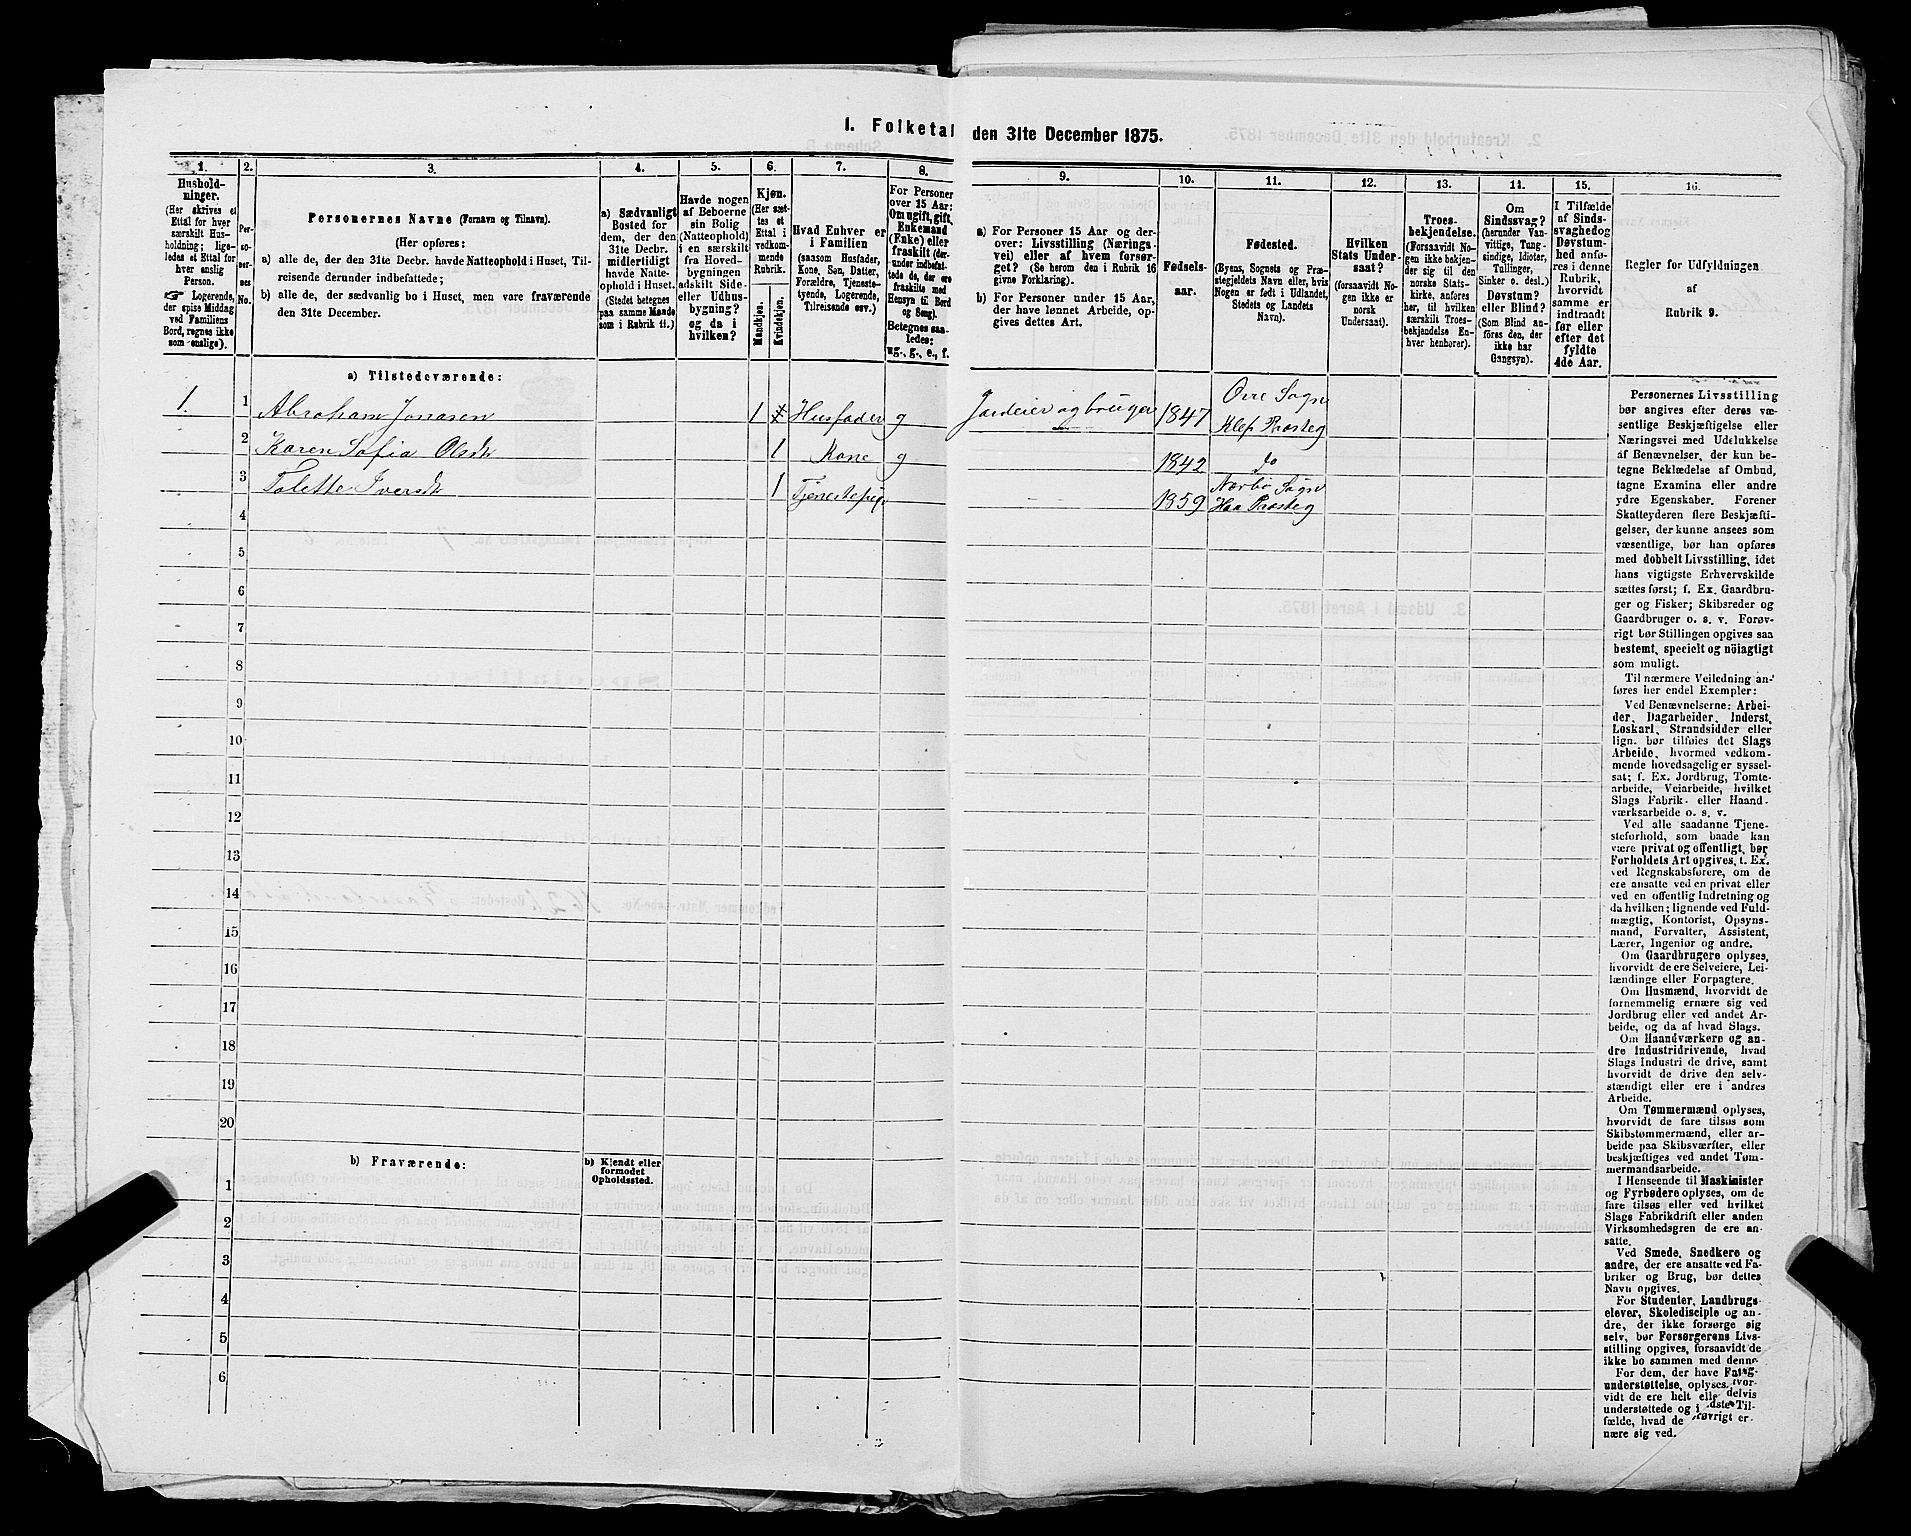 1. Folketal den 31te December 1875.
1. 2. 3. 4. 5. 6. 7. 8. 9. 10. 11. 12. 13. 14. 15. 16.
Hushold-
ninger.
(Her skrives et
Ettal for hver
særskilt Hus-
holdning; lige-
ledes et Ettal for
hver enslig
Person.
☞ Logerende,
der spise Middag
ved Familiens
Bord, regnes ikke
som enslige).
Per-
so-
ner-
nes
No.
Personernes Navne (Fornavn og Tilnavn).
(Her opføres:
a) alle de, der den 31te Decbr. havde Natteophold i Huset, Til-
reisende derunder indbefattede;
b) alle de, der sædvanlig bo i Huset, men vare fraværende
den 31te December.
a) Sædvanligt
Bosted for
dem, der den
31te Decbr.
midlertidigt
havde Natte-
ophold i Huset.
(Stedet betegnes
paa samme Maade
som i Rubrik 11.)
Havde nogen
af Beboerne
sin Bolig
(Natteophold)
i en særskilt
fra Hoved-
bygningen
adskilt Side-
eller Udhus-
bygning?
og da i
hvilken?
Kjøn.
(Her sæt-
tes et
Ettal i
vedkom-
mende
Rubrik.
Mandkjøn.
Kvindekjøn.
Hvad Enhver er
i Familien
(saasom Husfader,
Kone, Søn, Datter,
Forældre, Tjeneste-
tyende, Logerende,
Tilreisende osv.)
For Personer
over 15 Aar:
Om ugift, gift,
Enkemand
(Enke) eller
fraskilt (der-
under indbefat-
tede de, der ere
fraskilte med
Hensyn til Bord
og Seng).
Betegnes saa-
ledes:
ug., g., e., f.
a) For Personer 15 Aar og der-
over: Livsstilling (Nærings-
vei) eller af hvem forsør-
get? (Se herom den i Rubrik 16
givne Forklaring).
b) For Personer under 15 Aar,
der have lønnet Arbeide, op-
gives dettes Art.
Fødsels-
aar.
Fødested.
(Byens, Sognets og Præ-
stegjeldets Navn eller, hvis
Nogen er født i Udlandet,
Stedets og Landets
Navn).
Hvilken
Stats Under-
saat?
(forsaavidt No-
gen ikke er
norsk
Undersaat).
Troes-
bekjendelse.
(Forsaavidt No-
gen ikke bekjen-
der sig til den
norske Stats-
kirke, anføres
her, til hvilken
særskilt Troes-
bekjendelse En-
hver henhører).
Om
Sindssvag?
(herunder Van-
vittige, Tung-
sindige, Idioter,
Tullinger,
Sinker o. desl.)
Døvstum?
eller Blind?
(Som Blind an-
føres den, der
ikke har
Gangsyn).
I Tilfælde
af Sinds-
svaghed og
Døvstum-
hed anfø-
res i denne
Rubrik,
hvorvidt
samme er
indtraadt
før eller
efter det
fyldte
4de Aar.
Regler for Udfyldningen
af
Rubrik 9.
a) Tilstedeværende:
1. 1 Abraham Jonasen 1 Husfader g Jordeier og bruger 1847 Orre Sogn Klep Præsteg
2 Karen Sofia Olsdr 1 Kone g 1842 do
3 Tolette Iversdr 1 Tjenestepig. 1859 Nærbø Sogn Haa Præsteg
4
5
6
7
8
9
10
11
12
13
14
15
16
17
18
19
20
b) Fraværende:
b) Kjendt eller
formodet
Opholdssted.
1
2
3
4
5
6
Personernes Livsstilling
bør angives efter deres væ-
sentlige Beskjæftigelse eller
Næringsvei med Udelukkelse
af Benævnelser, der kun be-
tegne Beklædelse af Ombud,
tagne Examina eller andre
ydre Egenskaber. Forener
Skatteyderen flere Beskjæfti-
gelser, der kunne ansees som
væsentlige, bør han opføres
med dobbelt Livsstilling, idet
hans vigtigste Erhvervskilde
sættes først; f. Ex. Gaardbru-
ger og Fisker; Skibsreder og
Gaardbruger o. s. v. Forøv-
rigt bør Stillingen opgives saa
bestemt, specielt og nöiagtigt
som muligt.
Til nærmere Veiledning an-
føres her endel Exempler:
Ved Benævnelserne: Arbei-
der, Dagarbeider, Inderst,
Løskarl, Strandsidder eller
lign. bør tilføies det Slags
Arbeide, hvormed vedkom-
mende hovedsagelig er syssel-
sat; f. Ex. Jordbrug, Tomte-
arbeide, Veiarbeide, hvilket
Slags Fabrik- eller Haand-
værksarbeide o. s. v.
Ved alle saadanne Tjene-
steforhold, som baade kan
være privat og offentligt, bør
Forholdets Art opgives, t. Ex.
ved Regnskabsførere, om de
ere ansatte ved en privat eller
ved en offentlig Indretning og
da hvilken; lignende ved Fuld-
mægtig, Kontorist, Opsyns-
mand, Forvalter, Assistent,
Lærer, Ingeniør og andre.
Om Gaardbrugere oplyses,
hvorvidt de ere Selveiere, Lei-
lændinge eller Forpagtere.
Om Husmænd, hvorvidt de
fornemmelig ernære sig ved
Jordbrug eller ved andet Ar-
beide, og da af hvad Slags.
Om Haandværkere og an-
dre Industridrivende, hvad
Slags Industri de drive, samt
hvorvidt de drive den selv-
stændigt eller ere i andres
Arbeide.
Om Tømmermænd oplyses,
hvorvidt de fare tilsøs som
Skibstømmermænd, eller ar-
beide paa Skibsværfter, eller
beskjæftiges ved andet Tøm-
mermandsarbeide.
I Henseende til Maskinister
og Fyrbødere oplyses, om de
fare tilsøs eller ved hvilket
Slags Fabrikdrift eller anden
Virksomhedsgren de ere an-
satte.
Ved Smede, Snedkere og
andre, der ere ansatte ved Fa-
briker og Brug, bør dettes
Navn opgives.
For Studenter, Landbrugs-
elever, Skoledisciple og an-
dre, der ikke forsørge sig
selv, bør Forsørgerens Livs-
stilling opgives, forsaavidt de
ikke bo sammen med denne.
For dem, der have Fattig-
understøttelse, oplyses, hvor-
vidt de ere helt eller delvis
understøttede og i sidste Til-
fælde, hvad de forøvrigt er-
nære sig ved.